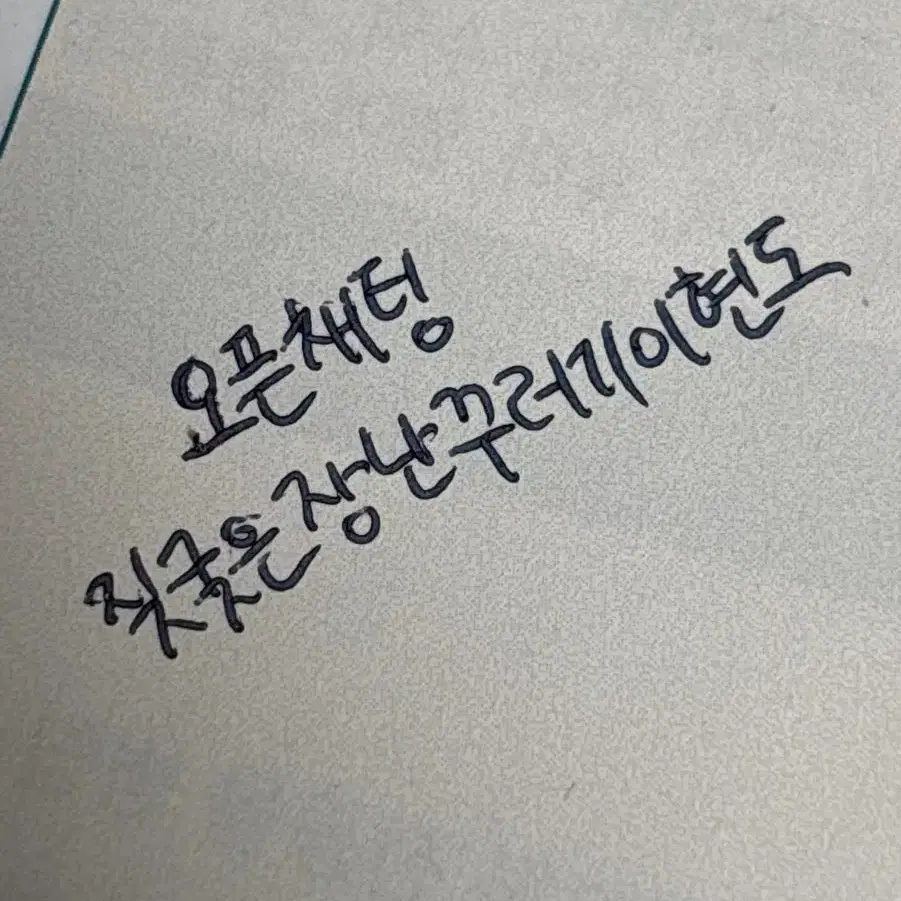 오픈채팅
짓궂은장난꾸러기이현도